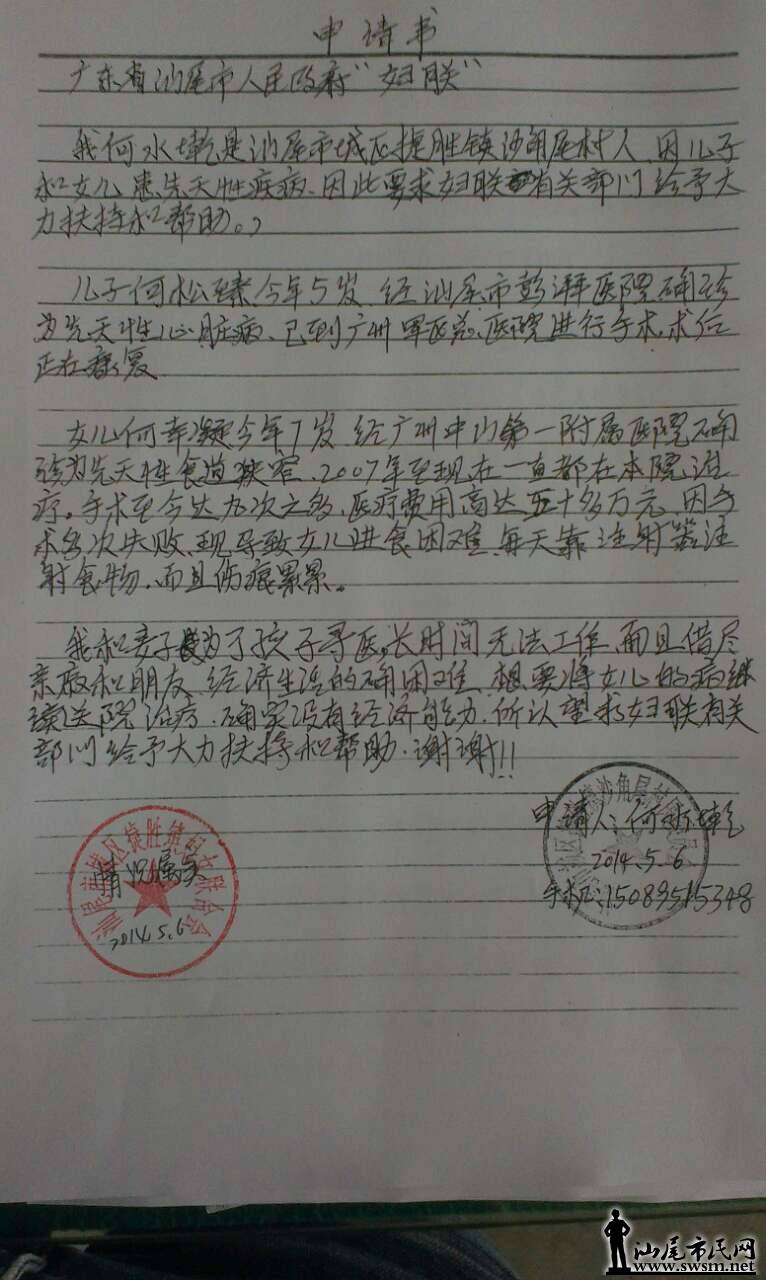 申请书
广东省汕尾市人民政府"妇联"
我何水乾是汕尾市城区捷胜镇沙角尾村人、因儿子
和女儿患先天性疾病、因此要求妇联有关部门给予大
力扶持和帮助。
儿子何松臻今年5岁、经汕尾市彭湃医院确诊
为先天性心脏病、已到广州军区总医院进行手术、术后
正在康复
女儿何幸凝今年7岁、经广州中山第一附属医院确
诊为先天性食道狭窄、2007年至现在一直都在本院治
疗。手术至今达九次之多、医疗费用高达五十多万元、因手
术多次失败、现导致女儿进食困难、每天靠注射器注
射食物、而且伤痕累累。
我和妻子为了孩子寻医、长时间无法工作、而且借尽
亲戚和朋友、经济生活的确困难、想要将女儿的病继
续送院治疗、确实没有经济能力、所以望求妇联有关
部门给予大力扶持和帮助、谢谢!!
申请人:何水乾
2014.5.6
手机:15089515348
情况属实
2014.5.6
汕尾市城区捷胜镇妇女联合会
汕尾市民网
www.swsm.net